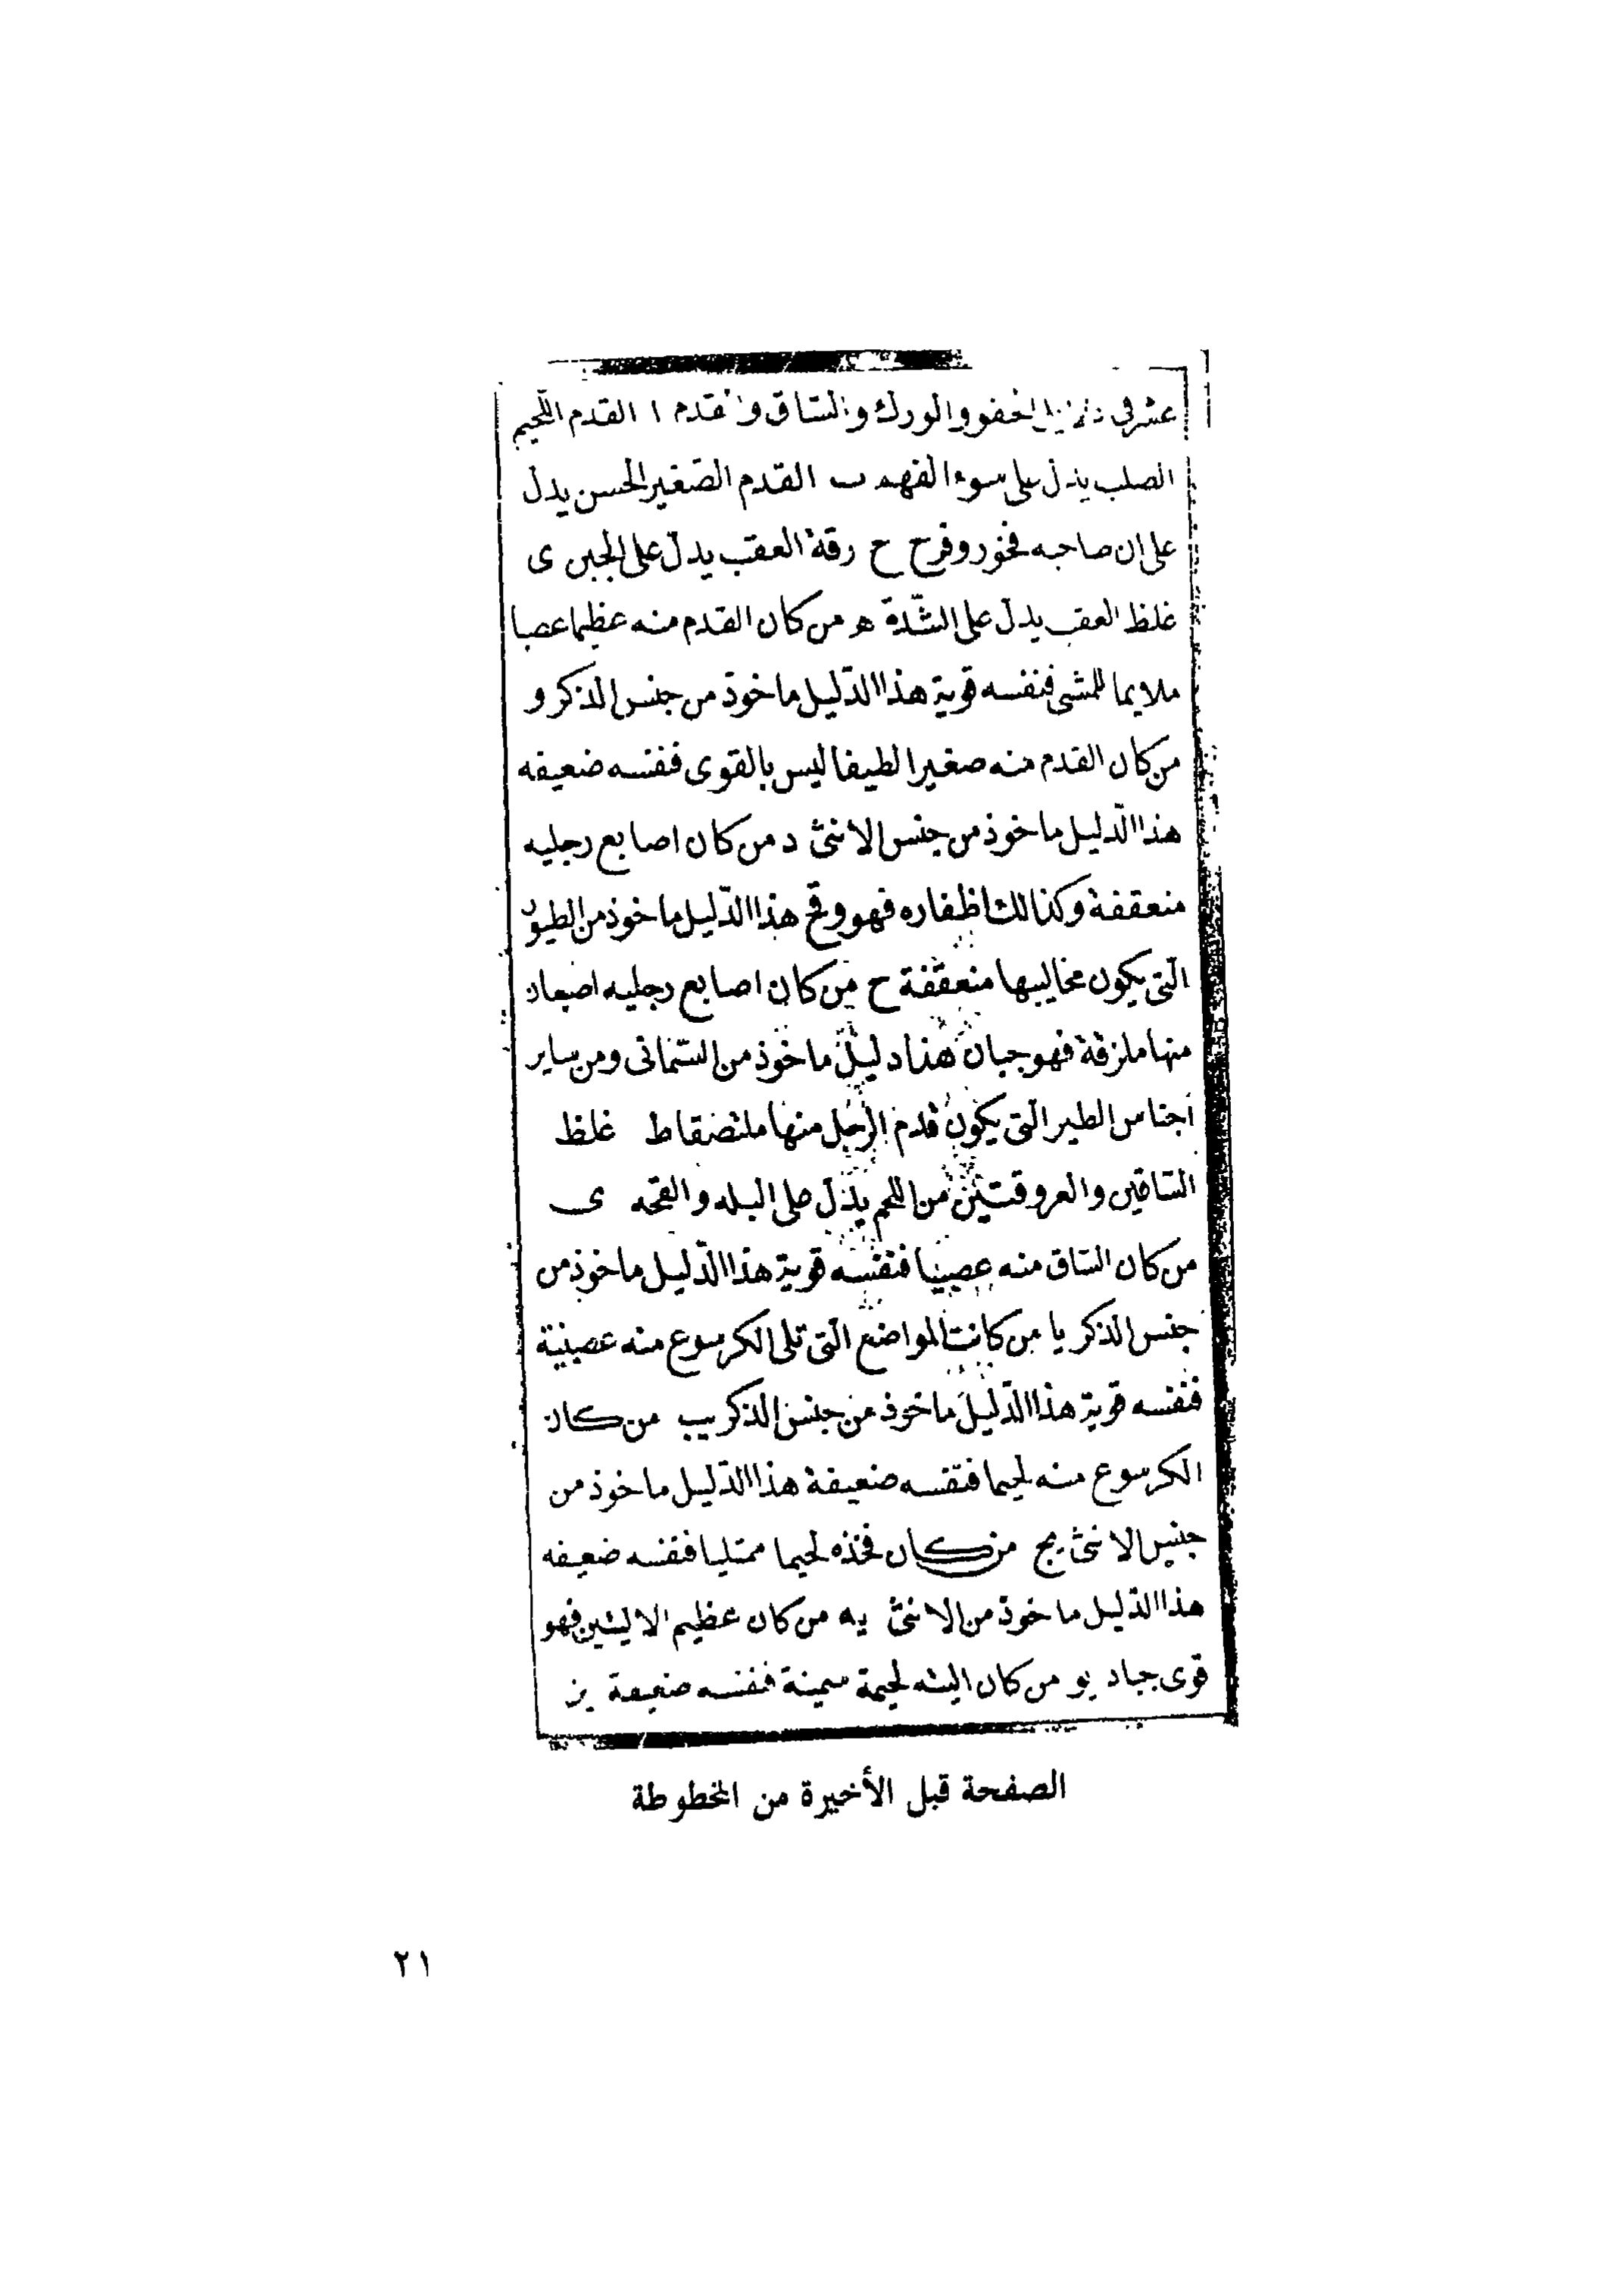 عشر في دلائل الحقو والورك والساق والقدم ا القدم اللحيم
الصلب يدل على سوء الفهم ب القدم الصغير الحسن يدل
على ان صاحبه فخور وفرح ح رقة العقب يدل على الجبن ى
غلظ العقب يدل على الشدة ه من كان القدم منه عظيما عصبا
ملايما للمشى فنفسه قوية هذا الدليل ماخوذ من جنس الذكر و
من كان القدم منه صغيرا لطيفا ليس بالقوى فنفسه ضعيفه
هذا الدليل ماخوذ من جنس الانثى د من كان اصابع رجليه
منعقفة وكذالك اظفاره فهو وقح هذا الدليل ماخوذ من الطيور
التى يكون مخاليبها منعقفة ح من كان اصابع رجليه اصبعان
منها ملزقة فهو جبان هذا دليل ماخوذ من السمانى ومن ساير
اجناس الطير التى يكون قدم الرجل منها ملتصقا ط غلظ
الساقين والعروقتين من اللحم يدل على البله والقحه ى
من كان الساق منه عصبيا فنفسه قوية هذا الدليل ماخوذ من
جنس الذكر يا من كانت المواضع التى تلى الكرسوع منه عصبية
فنفسه قوية هذا الدليل ماخوذ من جنس الذكر يب من كان
الكرسوع منه لحيما فنفسه ضعيفة هذا الدليل ماخوذ من
جنس الانثى يج من كان فخذه لحيما ممتليا فنفسه ضعيفه
هذا الدليل ماخوذ من الانثى يه من كان عظيم الاليتين فهو
قوى جباد يو من كان اليته لحيمة سمينة فنفسه ضعيفة يز
الصفحة قبل الأخيرة من المخطوطة
٢١